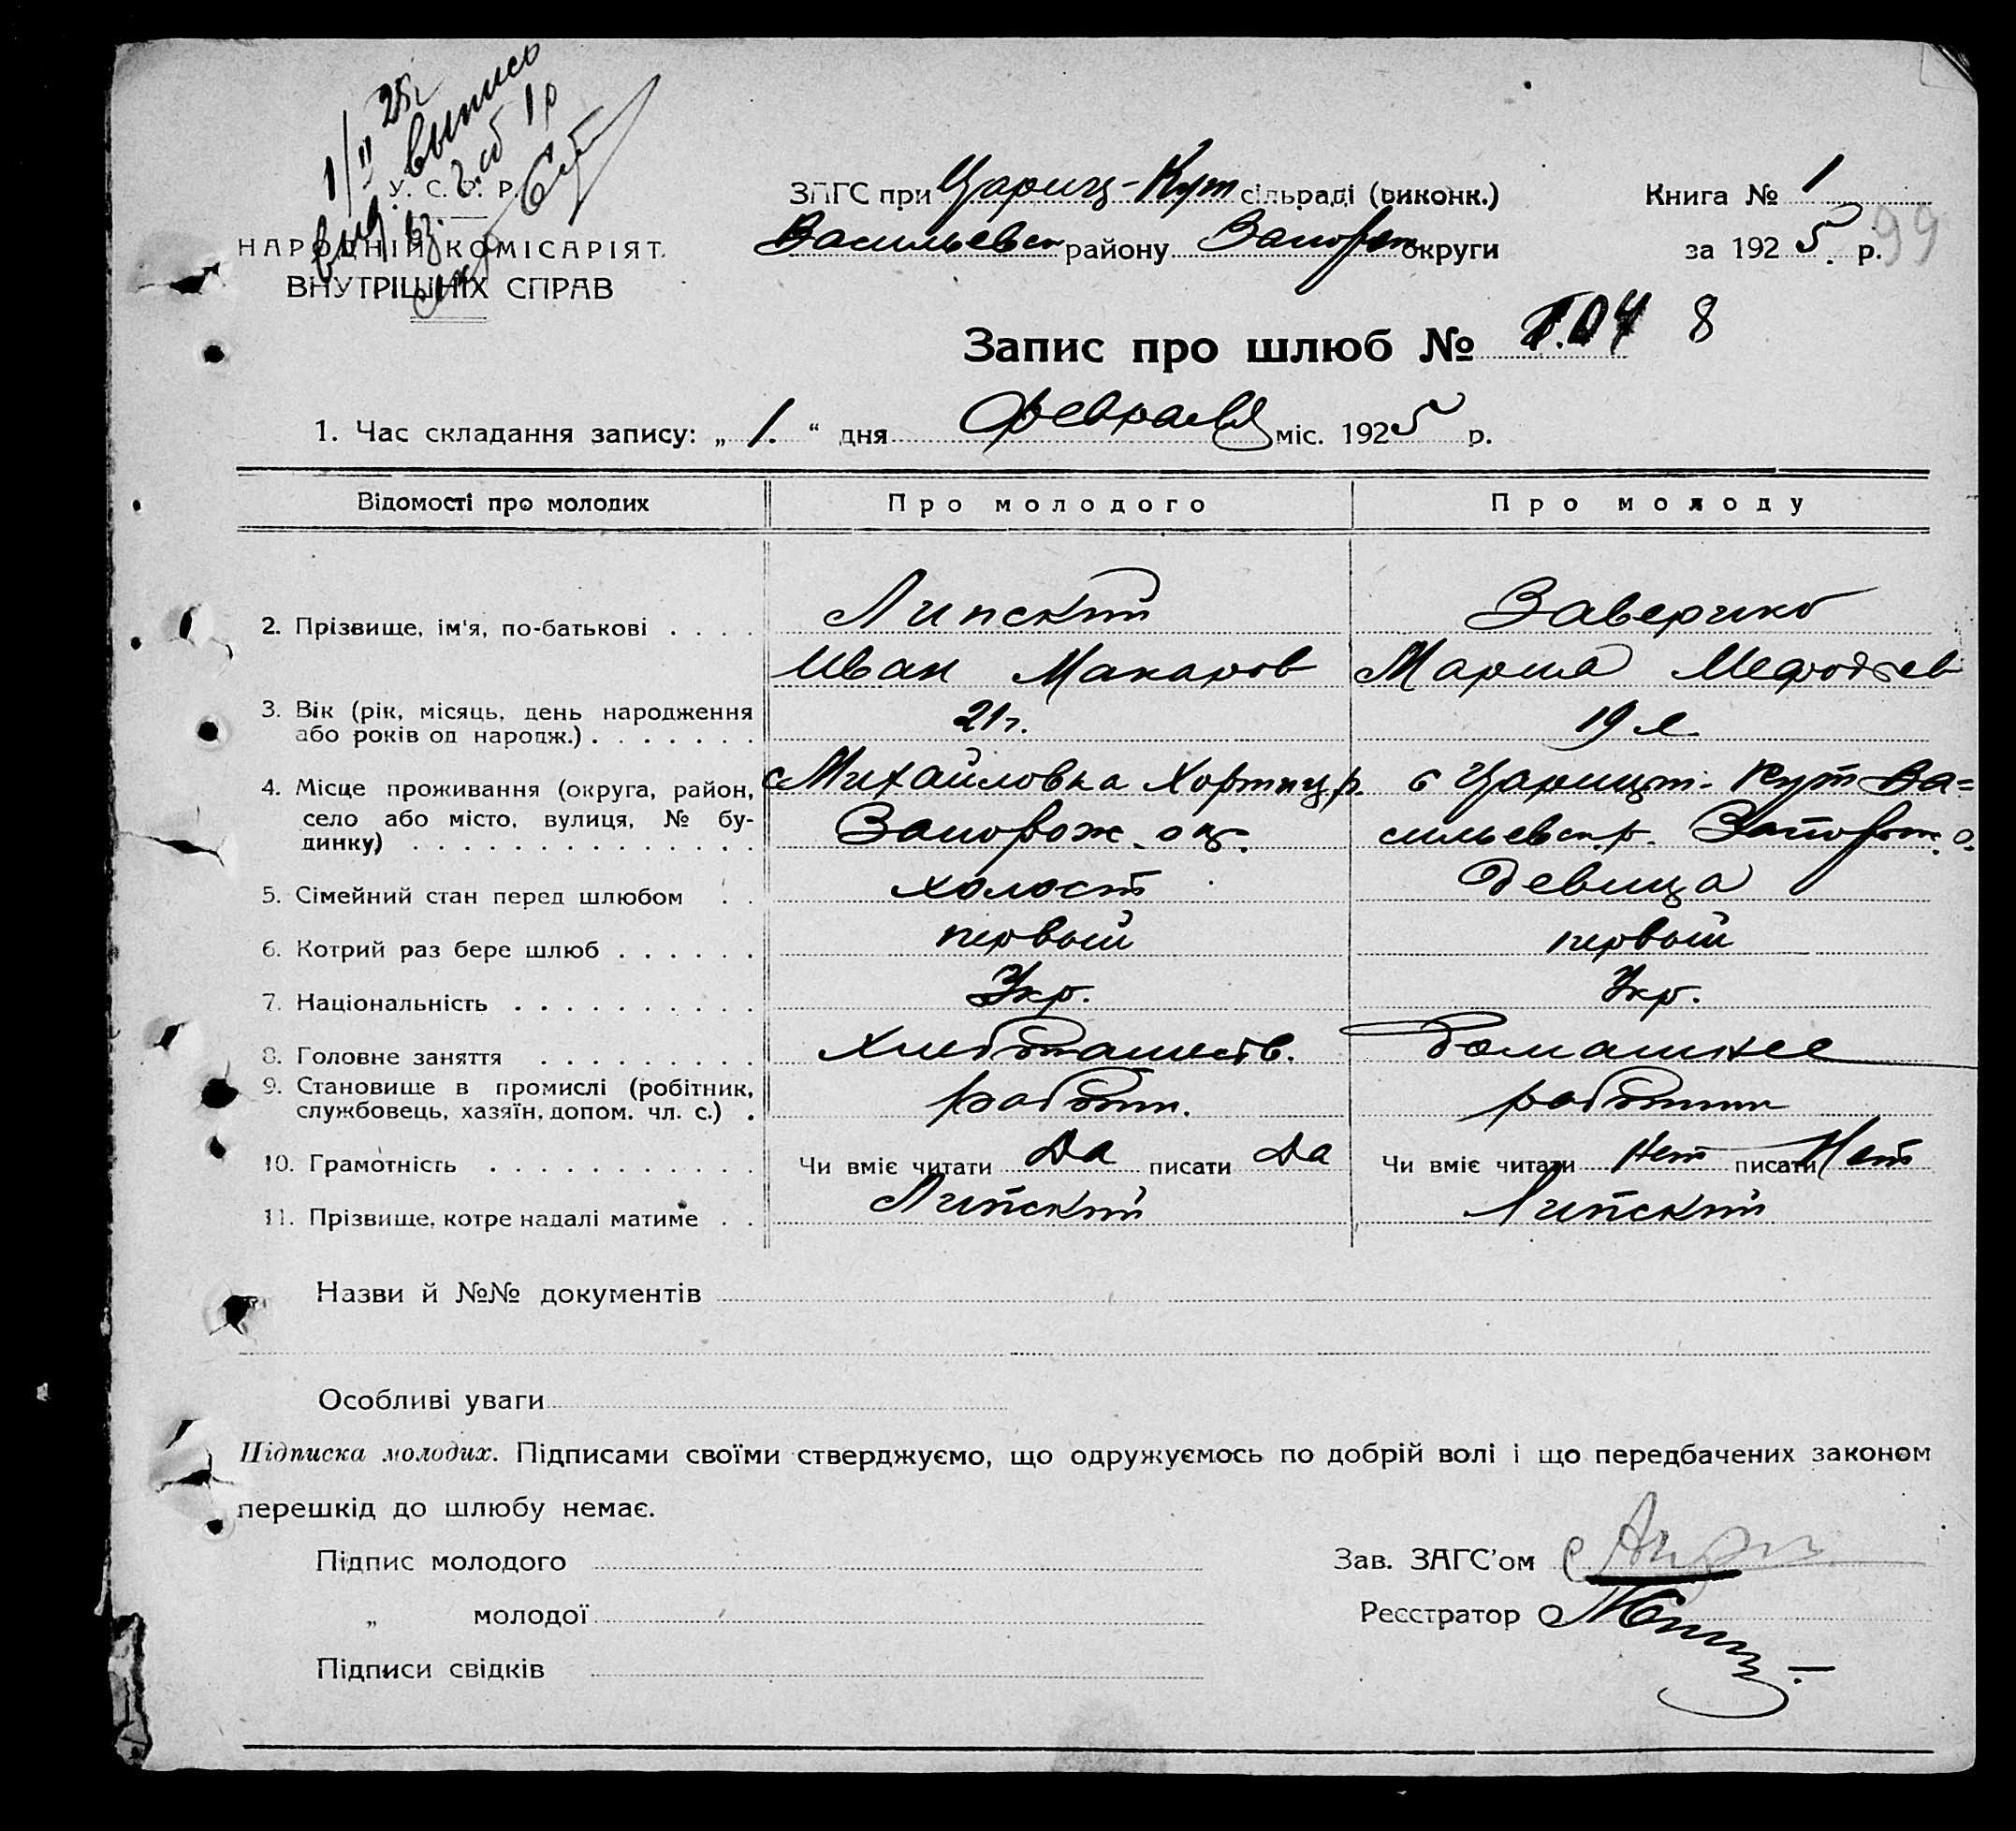 1/II 25 г.
выпись
У. С. Р. Р.
НАРОДНІЙ КОМІСАРІЯТ
ВНУТРІШНІХ СПРАВ
ЗАГС при Цариц-Кут сільраді (виконк.)
Васильевск району Запорож округи
Книга № 1
за 1925 р.
99
Запис про шлюб № 8
1. Час складання запису: „ 1. “ дня февраля міс. 1925 р.
Відомості про молодих Про молодого Про молоду
2. Прізвище, ім'я, по-батькові . . . . Липский
Иван Макаров
Мария Мефодьев
3. Вік (рік, місяць, день народження
або років од народж.) . . . . . . . 21 г. 19 л.
4. Місце проживання (округа, район,
село або місто, вулиця, № бу-
динку) . . . . . . . . . . . . . .
с Михайловка Хортиц. р.
Запорож. ок.
с Царицын. Кут Ва=
сильевск. р. Запорож. о.
5. Сімейний стан перед шлюбом . . холост девица
6. Котрий раз бере шлюб . . . . . . первый первый
7. Національність . . . . . . . . . . Укр. Укр.
8. Головне заняття . . . . . . . . . хлебопашеств. домашнее
9. Становище в промислі (робітник,
службовець, хазяїн, допом. чл. с.) .
10. Грамотність . . . . . . . . . . . Чи вміє читати Да писати Да Чи вміє читати Нет писати Нет
11. Прізвище, котре надалі матиме . . Липский Липский
Назви й №№ документів
Особливі уваги
Підписка молодих. Підписами своїми стверджуємо, що одружуємось по добрій волі і що передбачених законом
перешкід до шлюбу немає.
Підпис молодого
„ молодої
Підписи свідків
Зав. ЗАГС'ом
Реєстратор